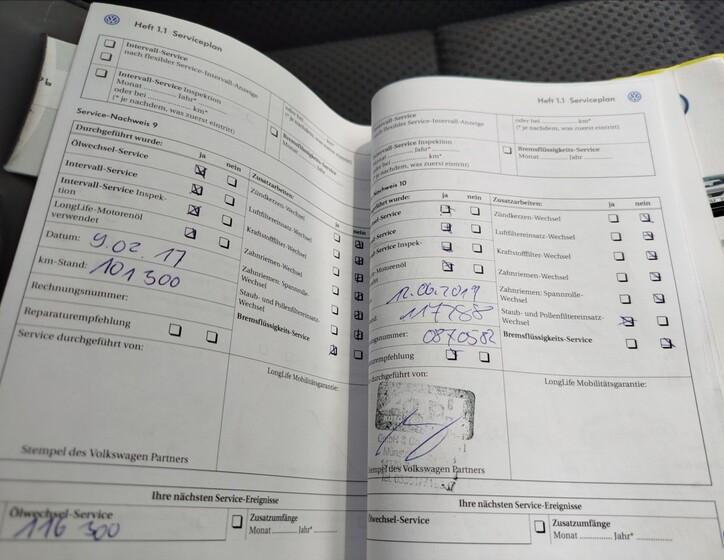 Heft 1.1 Serviceplan
Intervall-Service
nach flexibler Service-Intervall-Anzeige
Intervall-Service Inspektion
Monat ............ Jahr* ............
oder bei ............ km*
(* je nachdem, was zuerst eintritt)
oder bei
(* je nachdem
Bremsflüssigkeits-Service
Monat
Service-Nachweis 9
Durchgeführt wurde:
ja
nein
Zusatzarbeiten:
Ölwechsel-Service
Intervall-Service
Intervall-Service Inspek-
tion
LongLife-Motorenöl
verwendet
Datum: 9.02.17
km-Stand: 101 300
Rechnungsnummer:
Reparaturempfehlung
Service durchgeführt von:
Zündkerzen-Wechsel
Luftfiltereinsatz-Wechsel
Kraftstofffilter-Wechsel
Zahnriemen-Wechsel
Zahnriemen: Spannrolle-
Wechsel
Staub- und Pollenfiltereinsatz-
Wechsel
Bremsflüssigkeits-Service
LongLife Mobilitätsgarantie:
Stempel des Volkswagen Partners
Ihre nächsten Service-Ereignisse
Ölwechsel-Service
116 300
Zusatzumfänge
Monat ............ Jahr* ............
Heft 1.1 Serviceplan
-Service
flexibler Service-Intervall-Anzeige
-Service Inspektion
Jahr* ............
km*
nachdem, was zuerst eintritt)
oder bei ............ km*
(* je nachdem, was zuerst eintritt)
Bremsflüssigkeits-Service
Monat ............ Jahr ............
Nachweis 10
führt wurde:
ja
nein
Zusatzarbeiten:
ja
nein
-Service
-Service
Service Inspek-
Motorenöl
12.06.2019
117288
nummer: 0870582
empfehlung
durchgeführt von:
Zündkerzen-Wechsel
Luftfiltereinsatz-Wechsel
Kraftstofffilter-Wechsel
Zahnriemen-Wechsel
Zahnriemen: Spannrolle-
Wechsel
Staub- und Pollenfiltereinsatz-
Wechsel
Bremsflüssigkeits-Service
LongLife Mobilitätsgarantie:
Stempel des Volkswagen Partners
Ihre nächsten Service-Ereignisse
Ölwechsel-Service
Zusatzumfänge
Monat ............ Jahr* ............